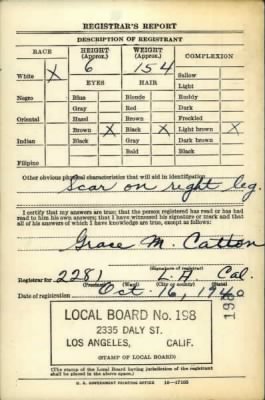 REGISTRAR'S REPORT
DESCRIPTION OF REGISTRANT
RACE HEIGHT (Approx.) WEIGHT (Approx.) COMPLEXION
White X 6 154 Sallow
EYES HAIR Light
Negro Blue Blonde Ruddy
Gray Red Dark
Oriental Hazel Brown Freckled
Brown X Black X Light brown X
Indian Black Gray Dark brown
Bald Black
Filipino
Other obvious physical characteristics that will aid in identification
Scar on right leg.
I certify that my answers are true; that the person registered has read or has had
read to him his own answers; that I have witnessed his signature or mark and that
all of his answers of which I have knowledge are true, except as follows:
Grace M. Catton
(Signature of registrar)
Registrar for 2281 L.A. Cal.
(Precinct) (Ward) (City or county) (State)
Date of registration Oct. 16, 1940
LOCAL BOARD No. 198
2335 DALY ST.
LOS ANGELES, CALIF.
(STAMP OF LOCAL BOARD)
198
(The stamp of the Local Board having jurisdiction of the registrant
shall be placed in the above space.)
U. S. GOVERNMENT PRINTING OFFICE 16—17105